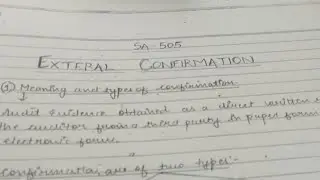 SA 505
EXTERAL CONFIRMATION
① Meaning and types of confirmation
Audit Evidence obtained as a direct written
the auditor from a third party in paper form
electronic forms.
Confirmation are of two types:-